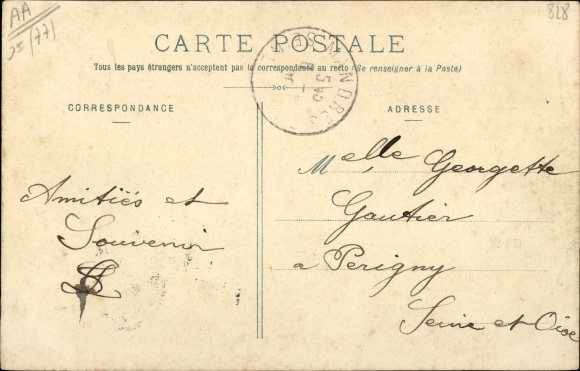 AA
828
CARTE POSTALE
Tous les pays étrangers n'acceptent pas la correspondance au recto (Se renseigner à la Poste)
CORRESPONDANCE
ADRESSE
Amitiés et
Souvenir
Melle Georgette
Gautier
a Perigny
Seine et Oise
MANDRES